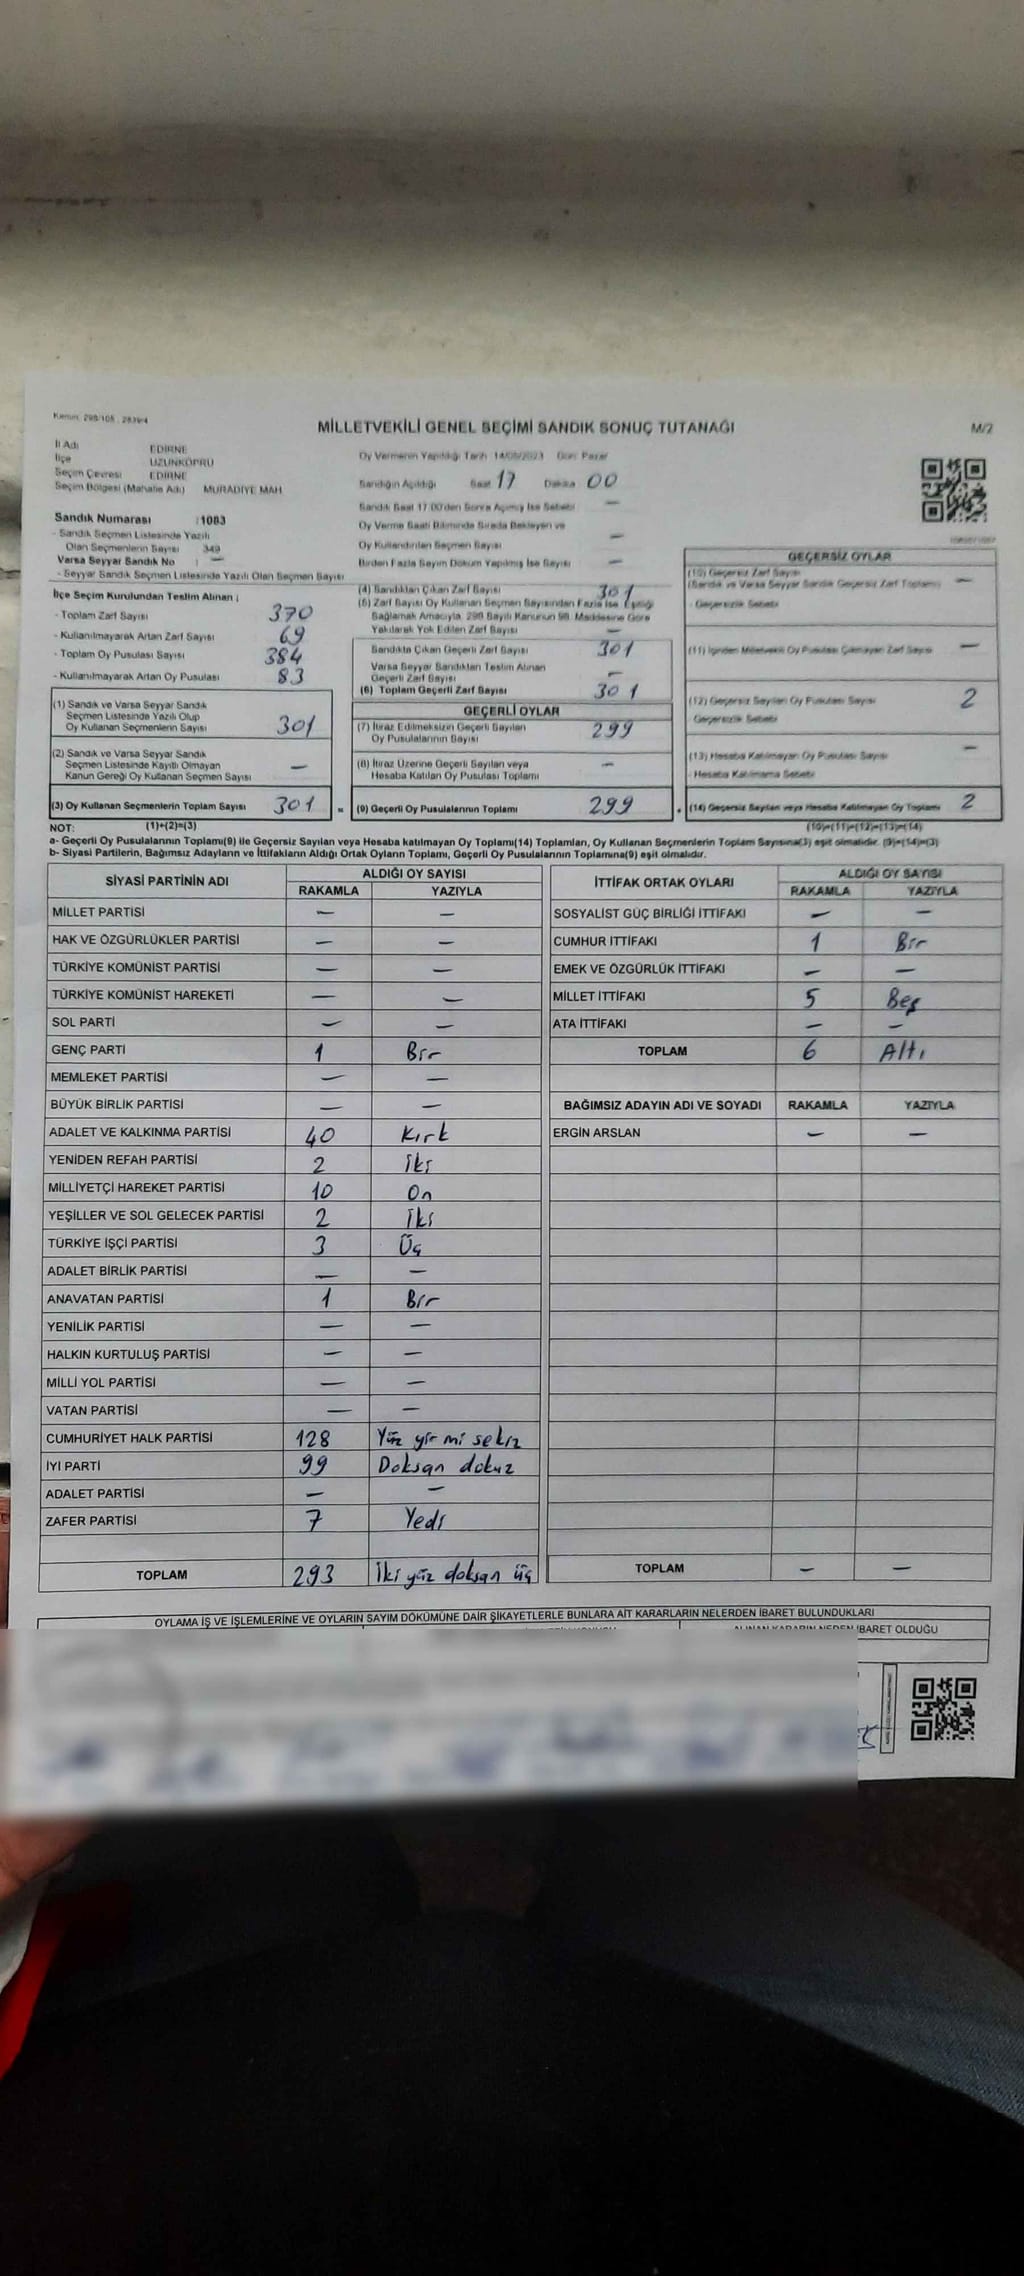 Kanun: 298/105 , 2839/4
MİLLETVEKİLİ GENEL SEÇİMİ SANDIK SONUÇ TUTANAĞI
M/2
İl Adı EDİRNE
İlçe UZUNKÖPRÜ
Seçim Çevresi EDİRNE
Seçim Bölgesi (Mahalle Adı) MURADİYE MAH
Sandık Numarası :1083
- Sandık Seçmen Listesinde Yazılı
Olan Seçmenlerin Sayısı 349
Varsa Seyyar Sandık No : —
- Seyyar Sandık Seçmen Listesinde Yazılı Olan Seçmen Sayısı
İlçe Seçim Kurulundan Teslim Alınan ;
- Toplam Zarf Sayısı 370
- Kullanılmayarak Artan Zarf Sayısı 69
- Toplam Oy Pusulası Sayısı 384
- Kullanılmayarak Artan Oy Pusulası 83
(1) Sandık ve Varsa Seyyar Sandık
Seçmen Listesinde Yazılı Olup
Oy Kullanan Seçmenlerin Sayısı 301
(2) Sandık ve Varsa Seyyar Sandık
Seçmen Listesinde Kayıtlı Olmayan
Kanun Gereği Oy Kullanan Seçmen Sayısı —
(3) Oy Kullanan Seçmenlerin Toplam Sayısı 301 =
Oy Vermenin Yapıldığı Tarih 14/05/2023 Gün: Pazar
Sandığın Açıldığı Saat 17 Dakika 00
Sandık Saat 17:00'den Sonra Açılmış İse Sebebi —
Oy Verme Saati Bitiminde Sırada Bekleyen ve
Oy Kullandırılan Seçmen Sayısı —
Birden Fazla Sayım Döküm Yapılmış İse Sayısı —
(4) Sandıktan Çıkan Zarf Sayısı 301
(5) Zarf Sayısı Oy Kullanan Seçmen Sayısından Fazla İse Eşitliği
Sağlamak Amacıyla, 298 Sayılı Kanunun 98. Maddesine Göre
Yakılarak Yok Edilen Zarf Sayısı —
Sandıkta Çıkan Geçerli Zarf Sayısı 301
Varsa Seyyar Sandıktan Teslim Alınan
Geçerli Zarf Sayısı —
(6) Toplam Geçerli Zarf Sayısı 301
GEÇERLİ OYLAR
(7) İtiraz Edilmeksizin Geçerli Sayılan
Oy Pusulalarının Sayısı 299
(8) İtiraz Üzerine Geçerli Sayılan veya
Hesaba Katılan Oy Pusulası Toplamı —
(9) Geçerli Oy Pusulalarının Toplamı 299 +
GEÇERSİZ OYLAR
(10) Geçersiz Zarf Sayısı
(Sandık ve Varsa Seyyar Sandık Geçersiz Zarf Toplamı) —
- Geçersizlik Sebebi
(11) İçinden Milletvekili Oy Pusulası Çıkmayan Zarf Sayısı —
(12) Geçersiz Sayılan Oy Pusulası Sayısı 2
- Geçersizlik Sebebi
(13) Hesaba Katılmayan Oy Pusulası Sayısı —
- Hesaba Katılmama Sebebi
(14) Geçersiz Sayılan veya Hesaba Katılmayan Oy Toplamı 2
NOT: (1)+(2)=(3) (10)+(11)+(12)+(13)=(14)
a- Geçerli Oy Pusulalarının Toplamı(9) ile Geçersiz Sayılan veya Hesaba katılmayan Oy Toplamı(14) Toplamları, Oy Kullanan Seçmenlerin Toplam Sayısına(3) eşit olmalıdır. (9)+(14)=(3)
b- Siyasi Partilerin, Bağımsız Adayların ve İttifakların Aldığı Ortak Oyların Toplamı, Geçerli Oy Pusulalarının Toplamına(9) eşit olmalıdır.
SİYASİ PARTİNİN ADI ALDIĞI OY SAYISI
RAKAMLA YAZIYLA
MİLLET PARTİSİ — —
HAK VE ÖZGÜRLÜKLER PARTİSİ — —
TÜRKİYE KOMÜNİST PARTİSİ — —
TÜRKİYE KOMÜNİST HAREKETİ — —
SOL PARTİ — —
GENÇ PARTİ 1 Bir
MEMLEKET PARTİSİ — —
BÜYÜK BİRLİK PARTİSİ — —
ADALET VE KALKINMA PARTİSİ 40 Kırk
YENİDEN REFAH PARTİSİ 2 İki
MİLLİYETÇİ HAREKET PARTİSİ 10 On
YEŞİLLER VE SOL GELECEK PARTİSİ 2 İki
TÜRKİYE İŞÇİ PARTİSİ 3 Üç
ADALET BİRLİK PARTİSİ — —
ANAVATAN PARTİSİ 1 Bir
YENİLİK PARTİSİ — —
HALKIN KURTULUŞ PARTİSİ — —
MİLLİ YOL PARTİSİ — —
VATAN PARTİSİ — —
CUMHURİYET HALK PARTİSİ 128 Yüz yir mi sekiz
İYİ PARTİ 99 Doksan dokuz
ADALET PARTİSİ — —
ZAFER PARTİSİ 7 Yedi
TOPLAM 293 İki yüz doksan üç
İTTİFAK ORTAK OYLARI ALDIĞI OY SAYISI
RAKAMLA YAZIYLA
SOSYALİST GÜÇ BİRLİĞİ İTTİFAKI — —
CUMHUR İTTİFAKI 1 Bir
EMEK VE ÖZGÜRLÜK İTTİFAKI — —
MİLLET İTTİFAKI 5 Beş
ATA İTTİFAKI — —
TOPLAM 6 Altı
BAĞIMSIZ ADAYIN ADI VE SOYADI RAKAMLA YAZIYLA
ERGİN ARSLAN — —
TOPLAM — —
OYLAMA İŞ VE İŞLEMLERİNE VE OYLARIN SAYIM DÖKÜMÜNE DAİR ŞİKAYETLERLE BUNLARA AİT KARARLARIN NELERDEN İBARET BULUNDUKLARI
ALINAN KARARIN NEDEN İBARET OLDUĞU